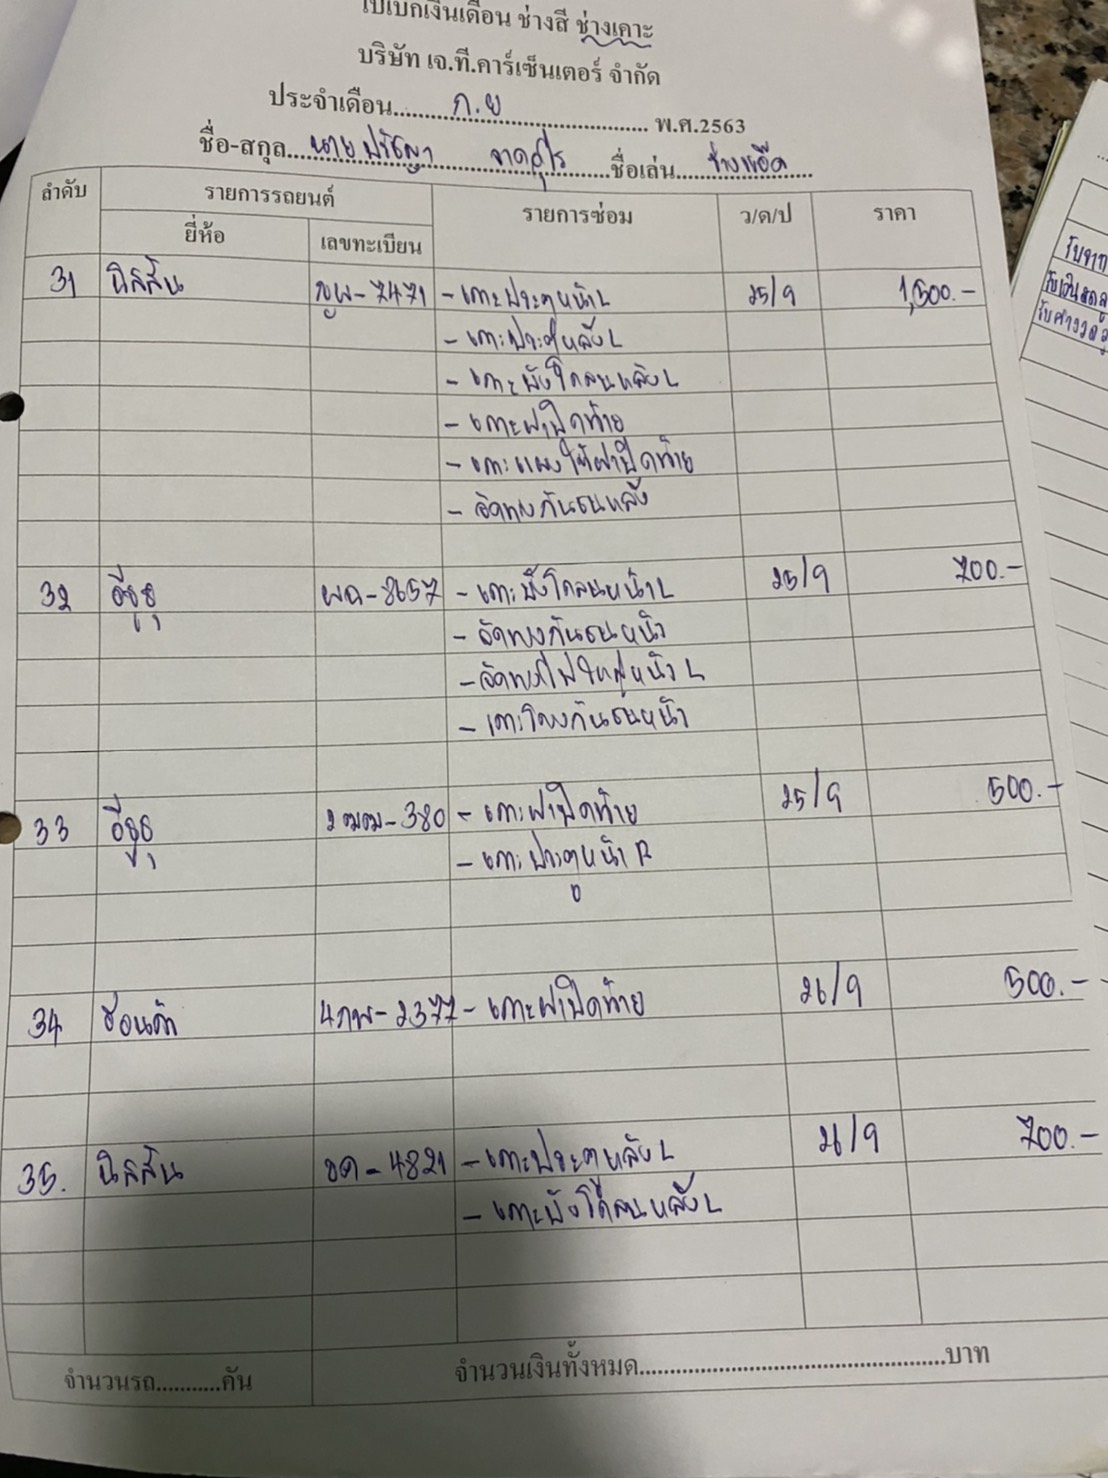 ใบเบิกเงินเดือน ช่างสี ช่างเคาะ
บริษัท เจ.ที.คาร์เซ็นเตอร์ จำกัด
ประจำเดือน......ก.ย...... พ.ศ.2563
ชื่อ-สกุล...นายปรัชญา ...ชื่อเล่น...ช่างแอ๊ด...
ลำดับ รายการรถยนต์ รายการซ่อม ว/ด/ป ราคา
ยี่ห้อ เลขทะเบียน
31 นิสสัน ฎผ-7471 - เคาะประตูหน้า L 25/9 1,500.-
- เคาะประตูหลัง L
- เคาะบังโคลนหลัง L
- เคาะฝาปิดท้าย
- เคาะแผงใต้ฝาปิดท้าย
- จัดทรงกันชนหลัง
32 อีซูซุ ผฉ-8657 - เคาะบังโคลนหน้า L 25/9 700.-
- จัดทรงกันชนหน้า
- จัดทรงไฟใหญ่หน้า L
- เคาะโครงกันชนหน้า
33 อีซูซุ 2ฒฒ-380 - เคาะฝาปิดท้าย 25/9 500.-
- เคาะประตูหน้า R
34 ฮอนด้า 4กพ-2377 - เคาะฝาปิดท้าย 26/9 500.-
35. นิสสัน ขค-4821 - เคาะประตูหลัง L 26/9 700.-
- เคาะบังโคลนหลัง L
จำนวนรถ...........คัน จำนวนเงินทั้งหมด..............................บาท
รับเงินสด